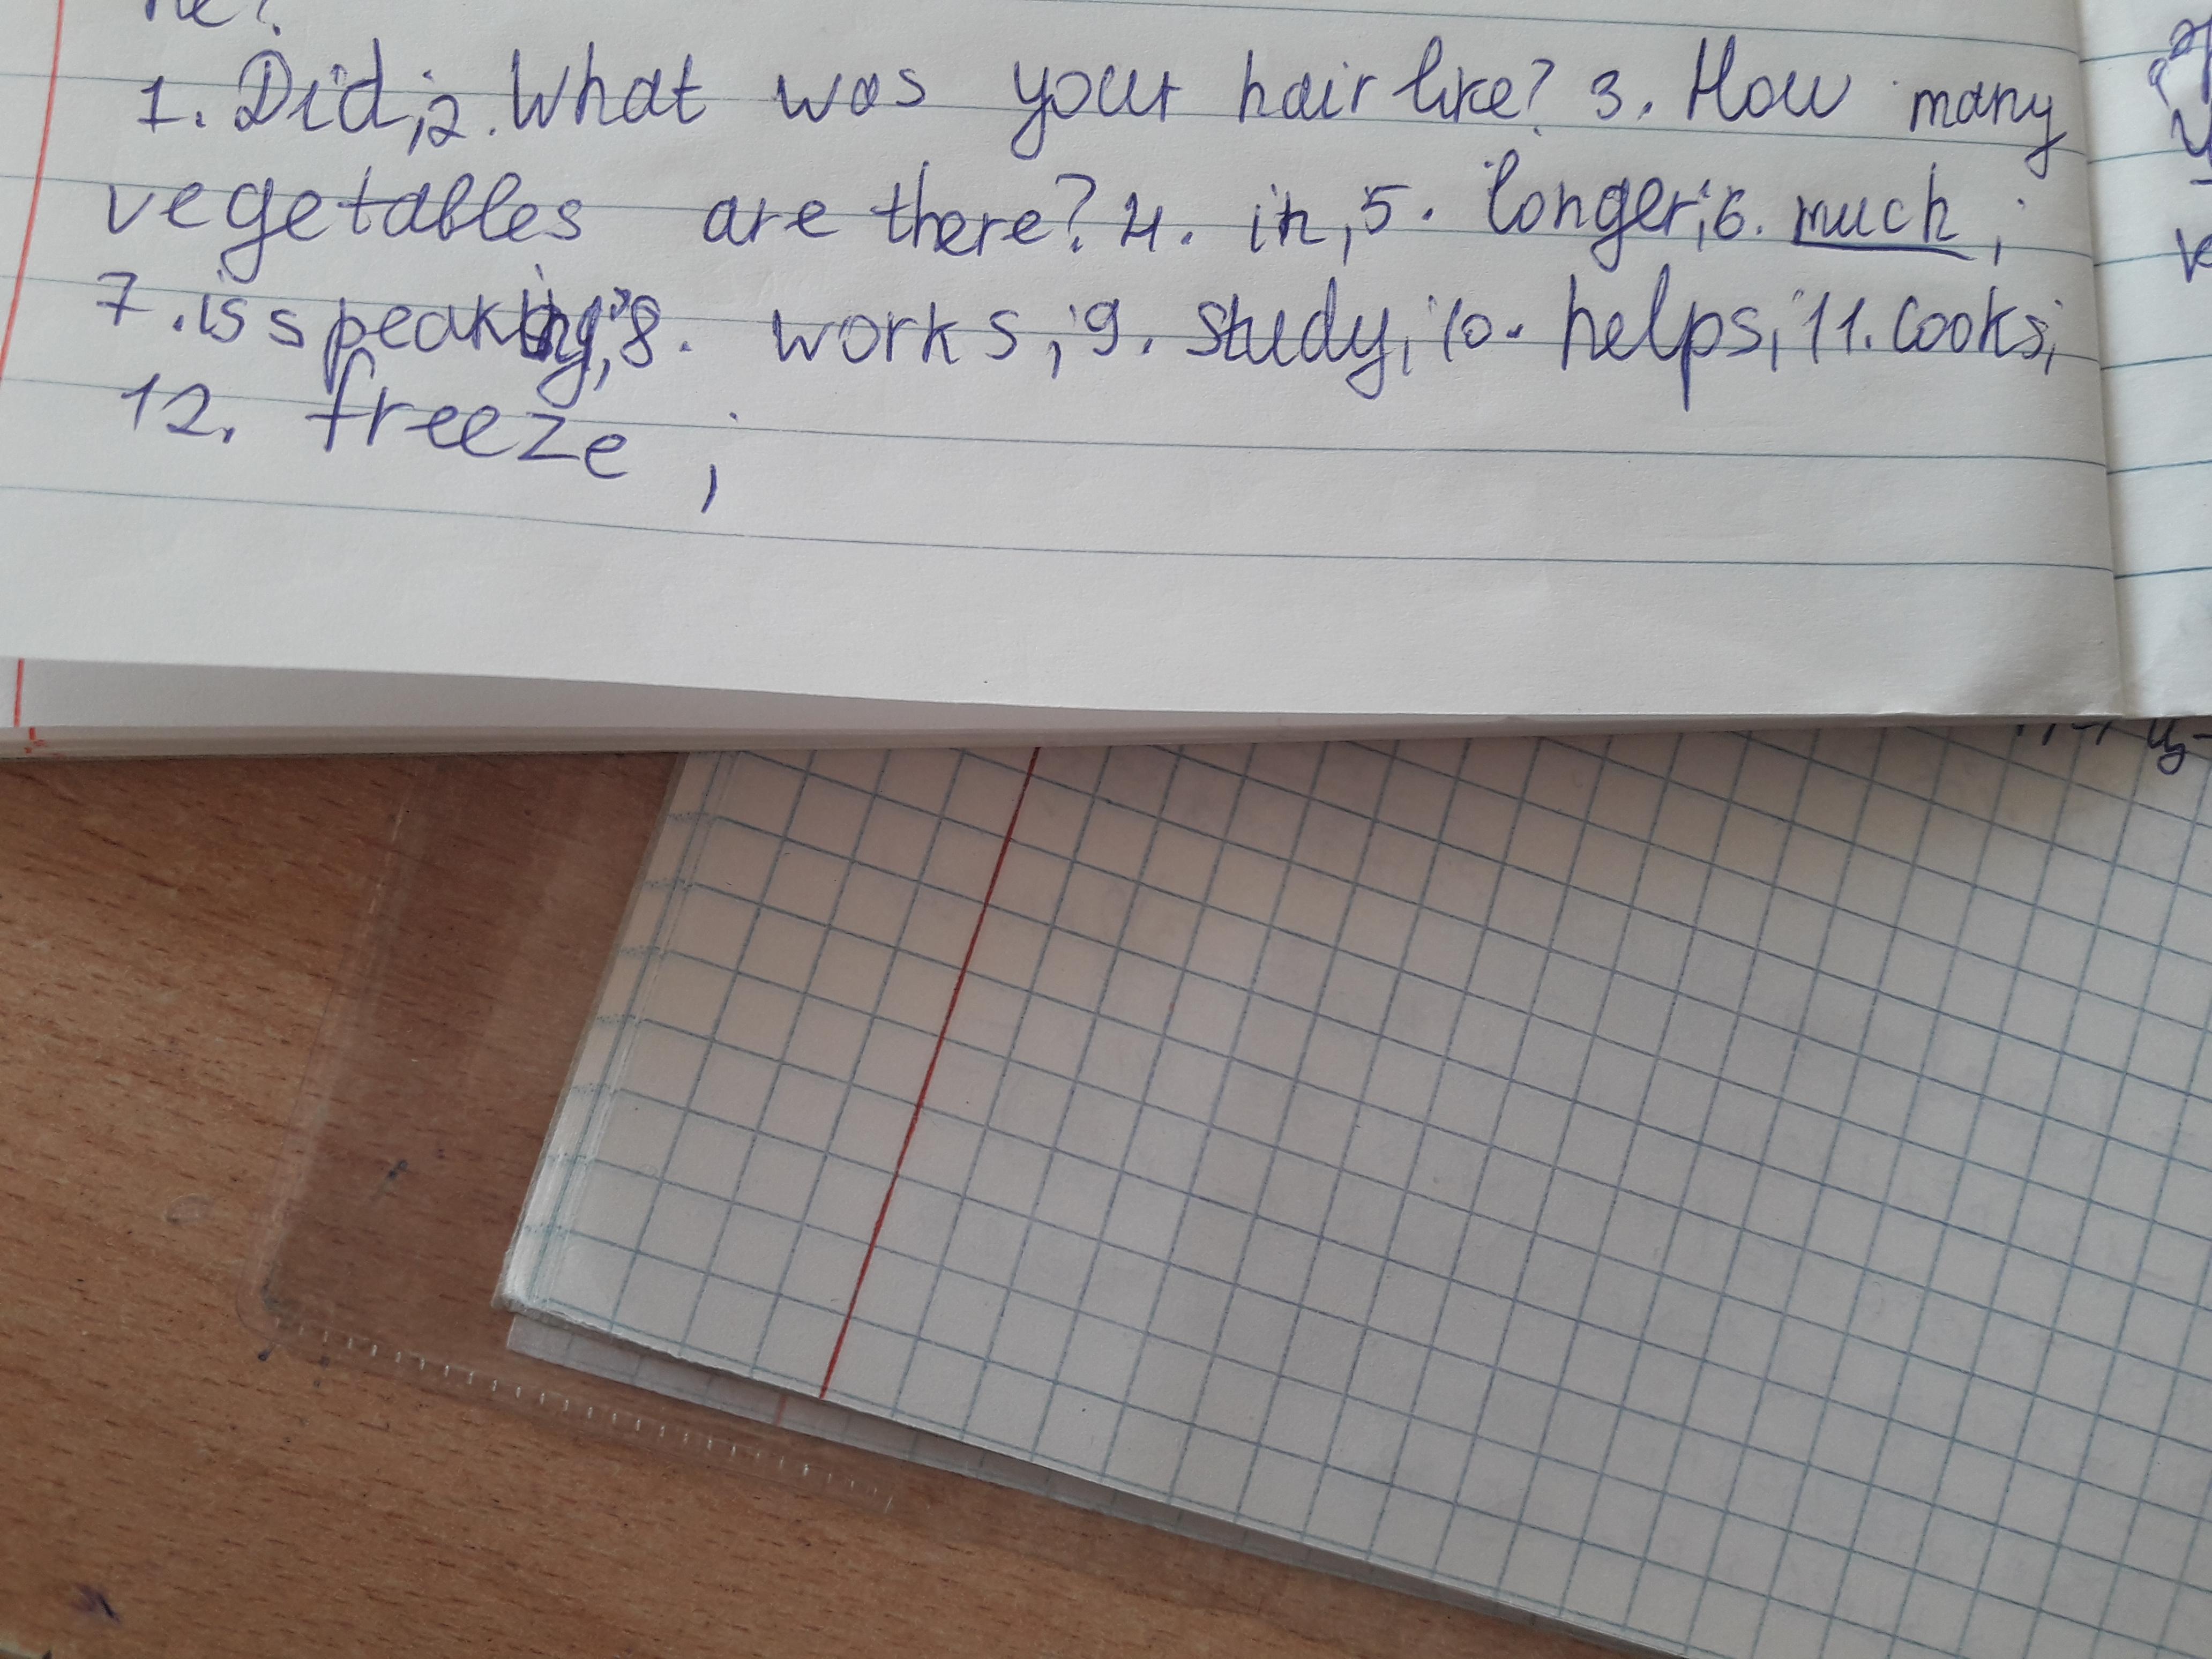 he?
1. Did; 2. What was your hair like? 3. How many
vegetables are there? 4. in; 5. longer; 6. much;
7. is speaking; 8. works; 9. study; 10. helps; 11. cooks;
12. freeze;